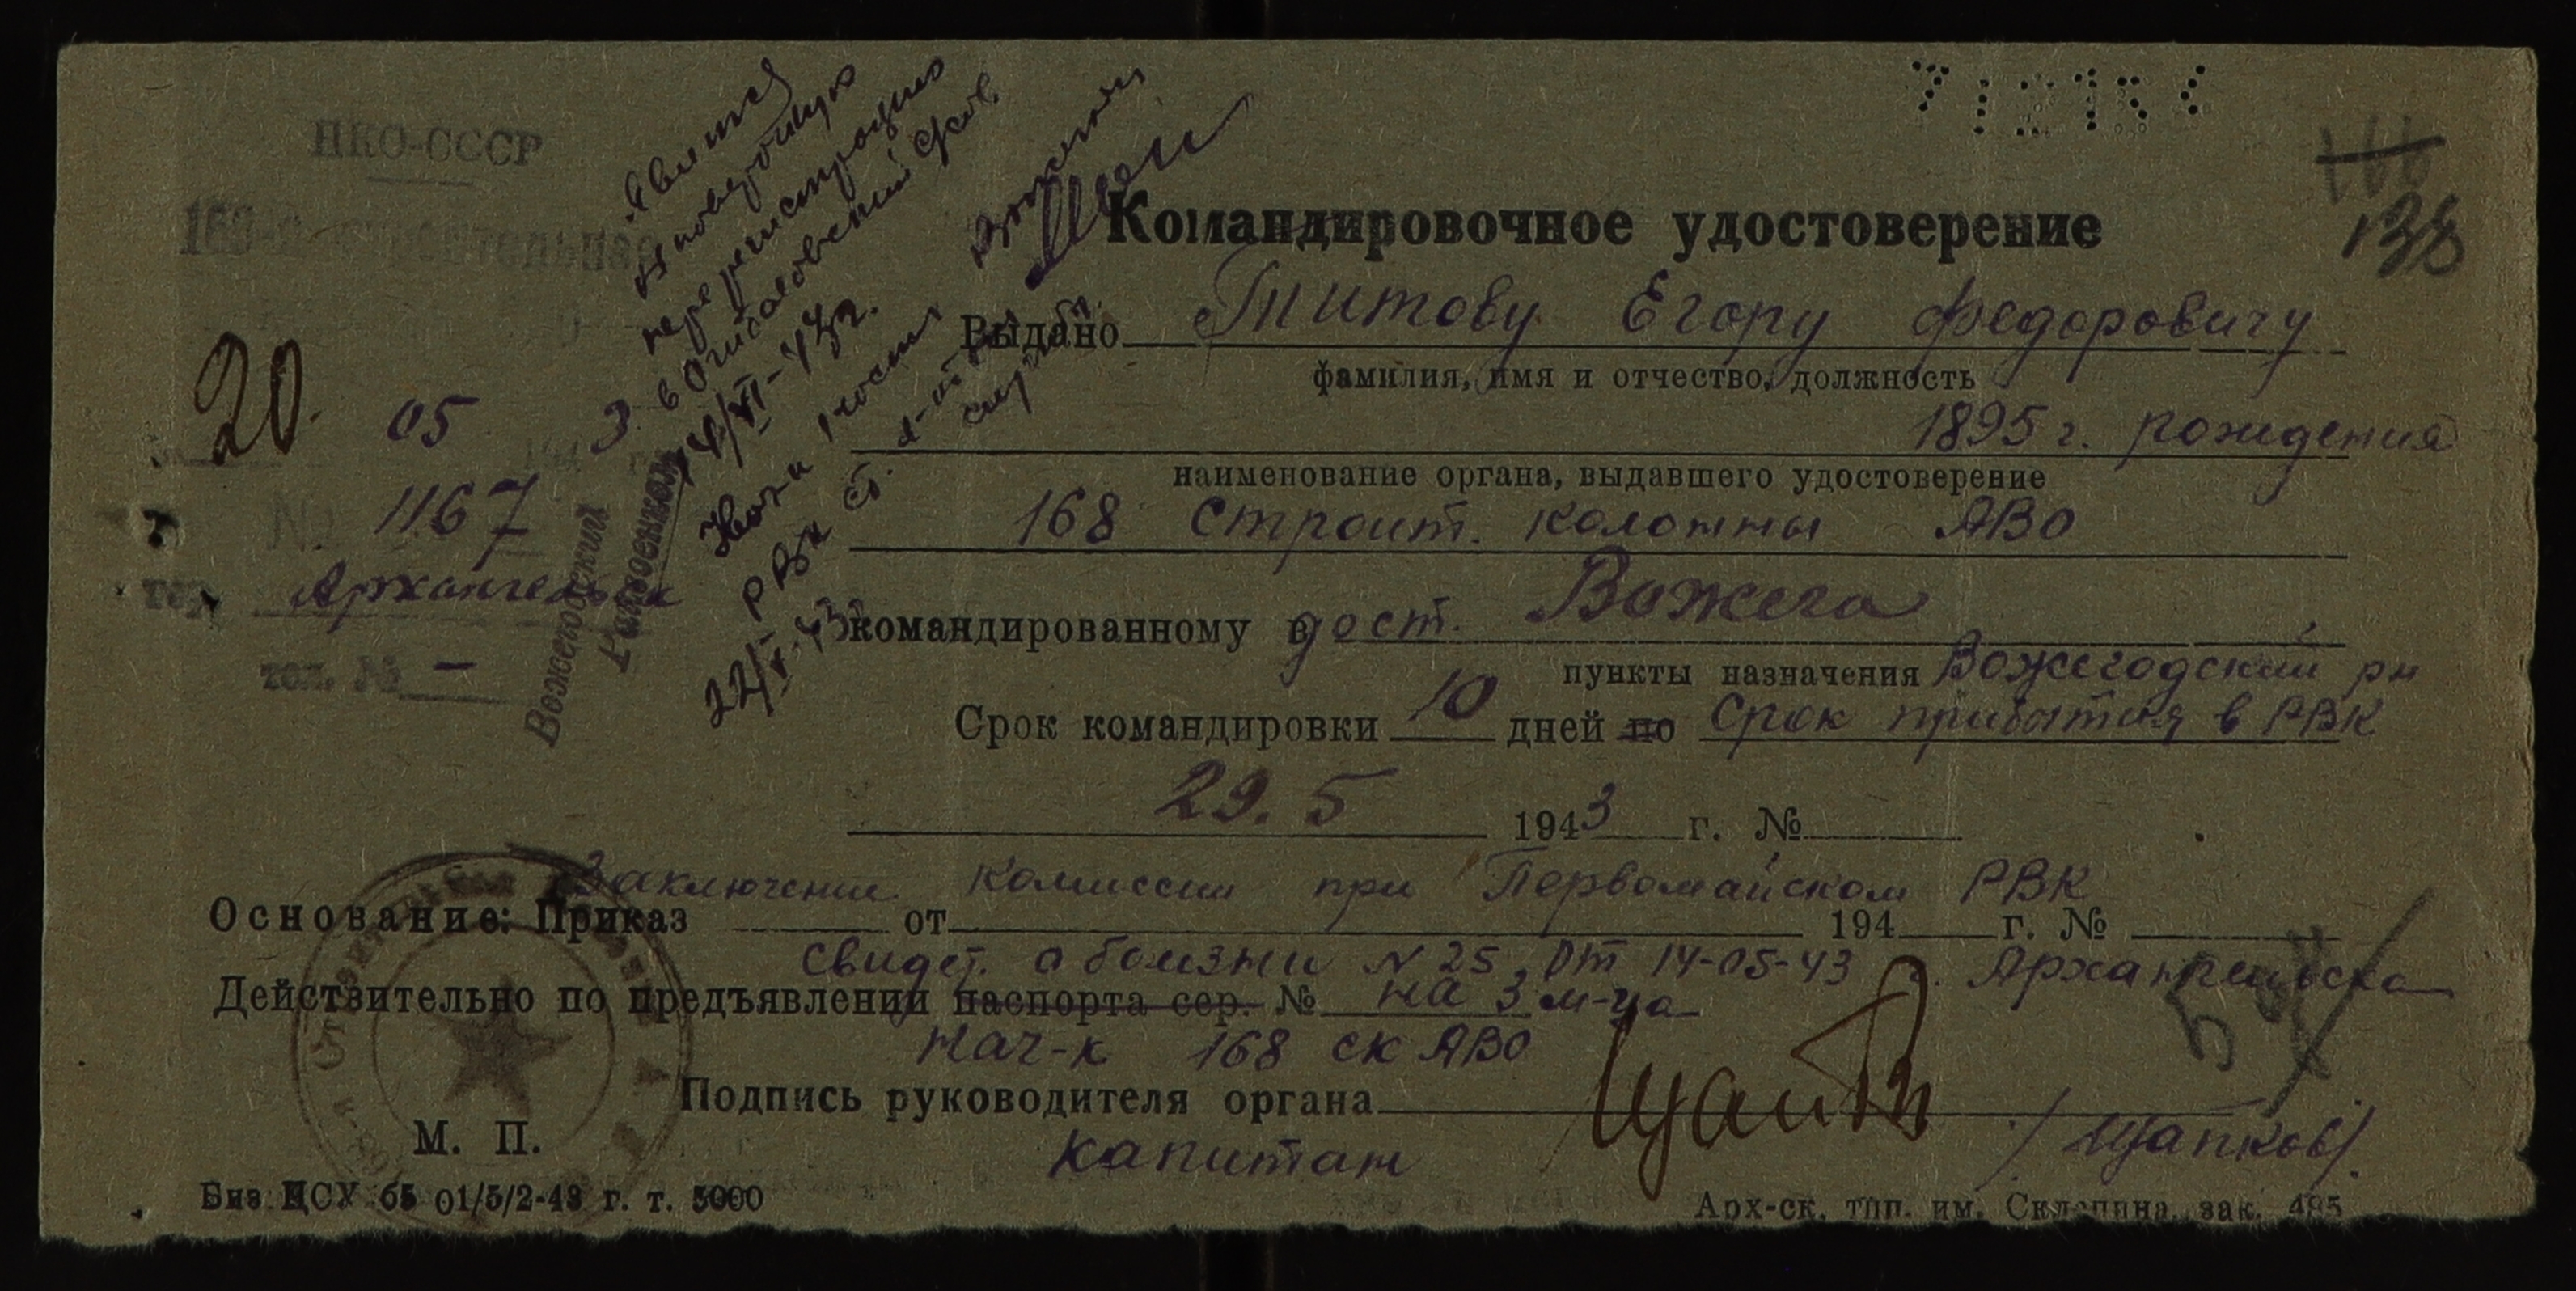 НКО-СССР
20. 05 3
№ 1167
гор. Архангельск
тел. № —
Вожегодский
Райвоенкомат
Явится
на повторную
перерегистрацию
14/VI-43г.
22/V-43
166
138
Командировочное удостоверение
Выдано Титову Егору Федоровичу
фамилия, имя и отчество, должность
1895 г. рождения
наименование органа, выдавшего удостоверение
168 Строит. колонны АВО
командированному в до ст. Вожега
пункты назначения Вожегодский рн
Срок командировки 10 дней по Срок прибытия в РВК
29. 5 1943 г. №
Заключение комиссии при Первомайском РВК
Основание: Приказ от 194 г. №
свидет. о болезни N 25 от 14-05-43 г. Архангельска
Действительно по предъявлении паспорта сер. № на 3 м-ца
Нач-к 168 СК АВО
Подпись руководителя органа
М. П.
капитан /Щапков/
Биз ЦСУ 65 01/5/2-43 г. т. 5000
Арх-ск. тип. им. Склепина, зак. 485